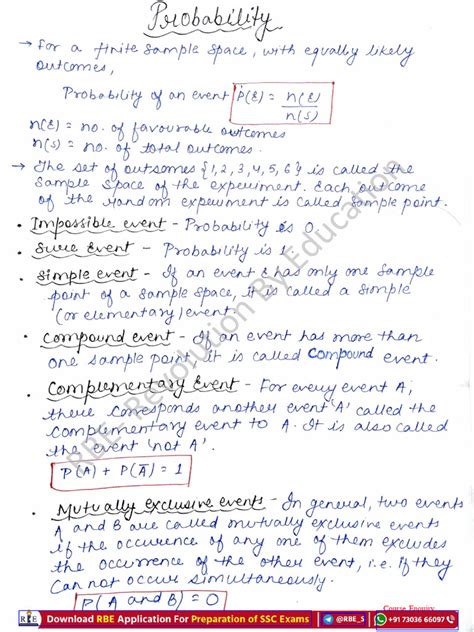 Probability
→ For a finite sample space, with equally likely
outcomes,
Probability of an event P(E) = n(E)/n(S)
n(E) = no. of favourable outcomes
n(S) = no. of total outcomes.
→ The set of outsomes {1,2,3,4,5,6} is called the
sample space of the experiment. Each outcome
of the random experiment is called sample point.
• Impossible event - Probability is 0.
• Sure Event - Probability is 1.
• Simple event - If an event E has only one sample
point of a sample space, it is called a simple
(or elementary) event.
• Compound event - If an event has more than
one sample point it is called compound event.
• Complementary Event - For every event A,
there corresponds another event 'A' called the
complementary event to A. It is also called
the event 'not A'.
P(A) + P(Ā) = 1
• Mutually exclusive events - In general, two events
A and B are called mutually exclusive events
if the occurence of any one of them excludes
the occurrence of the other event, i.e. if they
can not occur simultaneously.
P(A and B) = 0
RBE - Revolution By Education
Course Enquiry
RBE Download RBE Application For Preparation of SSC Exams @RBE_S +91 73036 66097